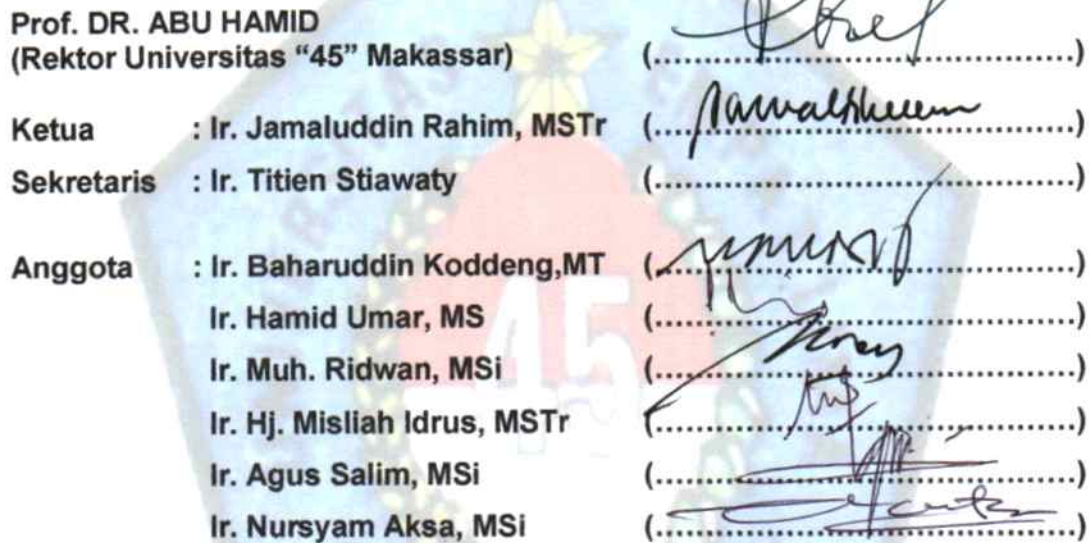 Prof. DR. ABU HAMID
(Rektor Universitas “45” Makassar) (............................................)
Ketua : Ir. Jamaluddin Rahim, MSTr (............................................)
Sekretaris : Ir. Titien Stiawaty (............................................)
Anggota : Ir. Baharuddin Koddeng,MT (............................................)
Ir. Hamid Umar, MS (............................................)
Ir. Muh. Ridwan, MSi (............................................)
Ir. Hj. Misliah Idrus, MSTr (............................................)
Ir. Agus Salim, MSi (............................................)
Ir. Nursyam Aksa, MSi (............................................)
45